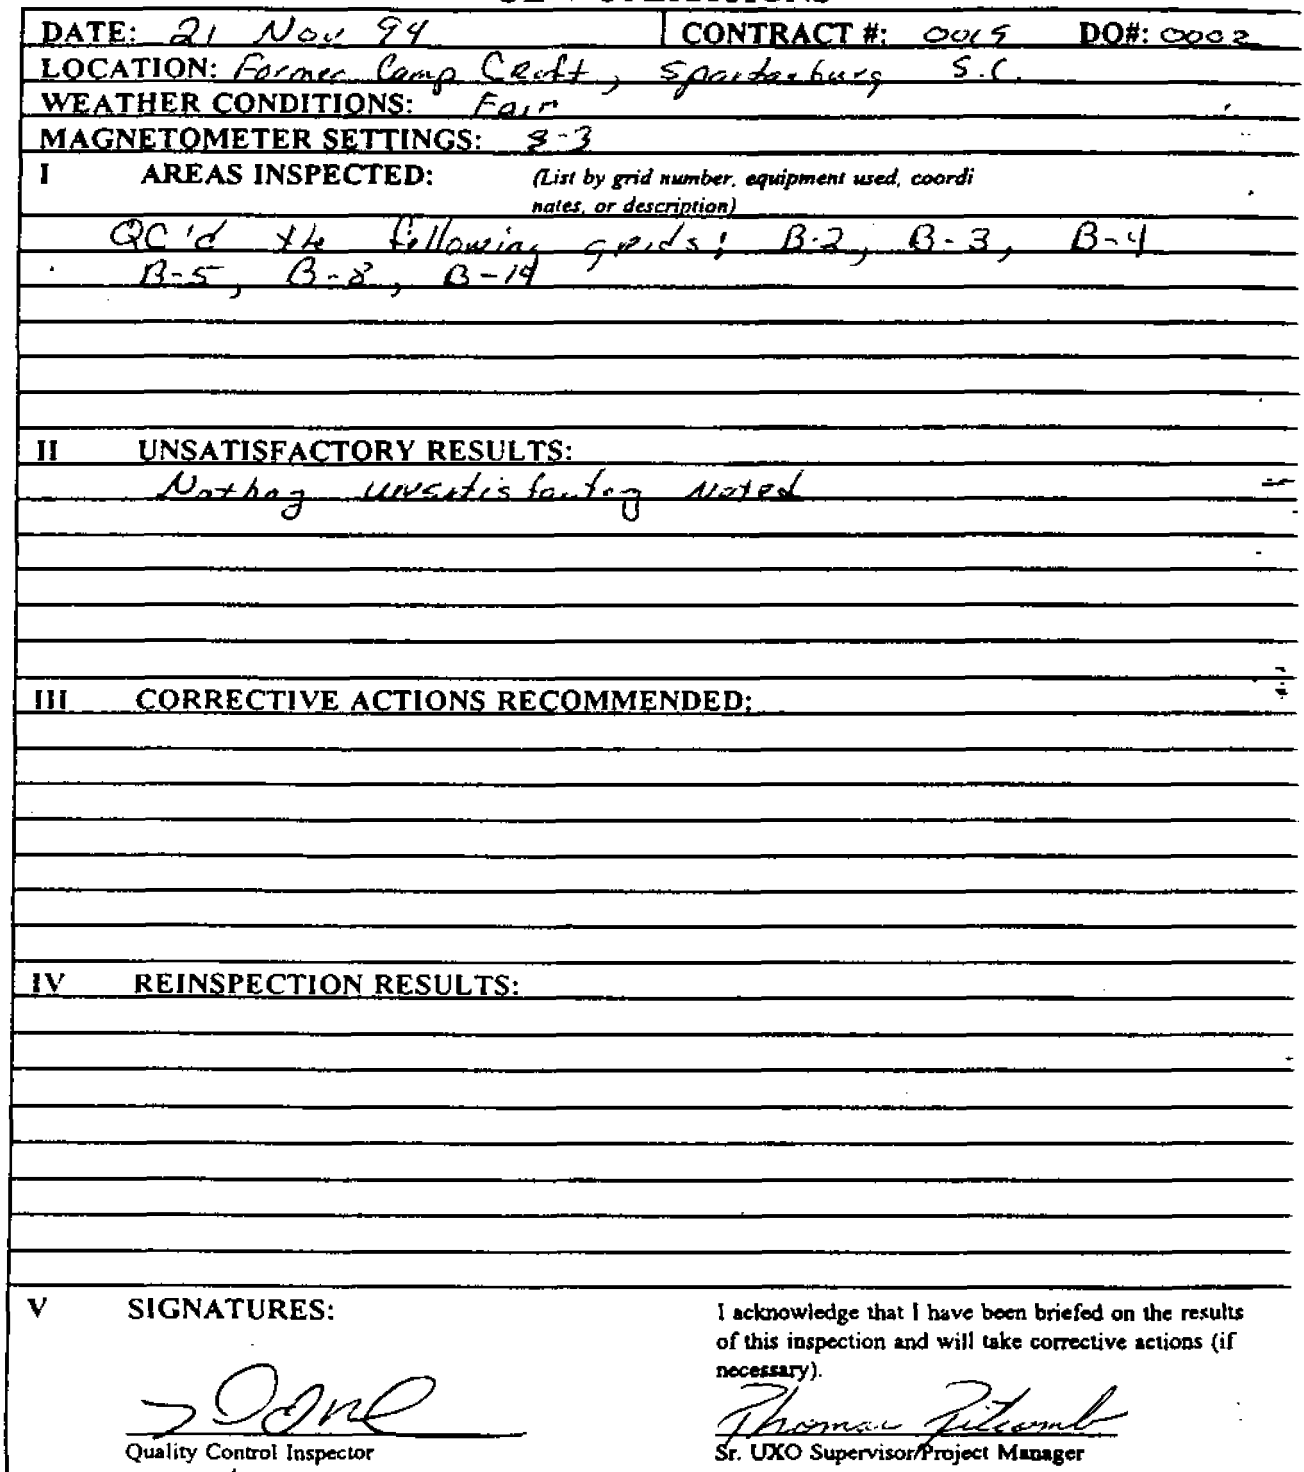 DATE: 21 Nov 94 CONTRACT #: 0015 DO#: 0002
LOCATION: Former Camp Croft, Spartanburg S.C.
WEATHER CONDITIONS: Fair
MAGNETOMETER SETTINGS: 2-3
I AREAS INSPECTED: (List by grid number, equipment used, coordi
nates, or description)
QC'd the following grids: B-2, B-3, B-4
B-5, B-8, B-14
II UNSATISFACTORY RESULTS:
Nothing unsatisfactory Noted
III CORRECTIVE ACTIONS RECOMMENDED:
IV REINSPECTION RESULTS:
V SIGNATURES:
I acknowledge that I have been briefed on the results
of this inspection and will take corrective actions (if
necessary).
Thomas
Quality Control Inspector
Sr. UXO Supervisor/Project Manager